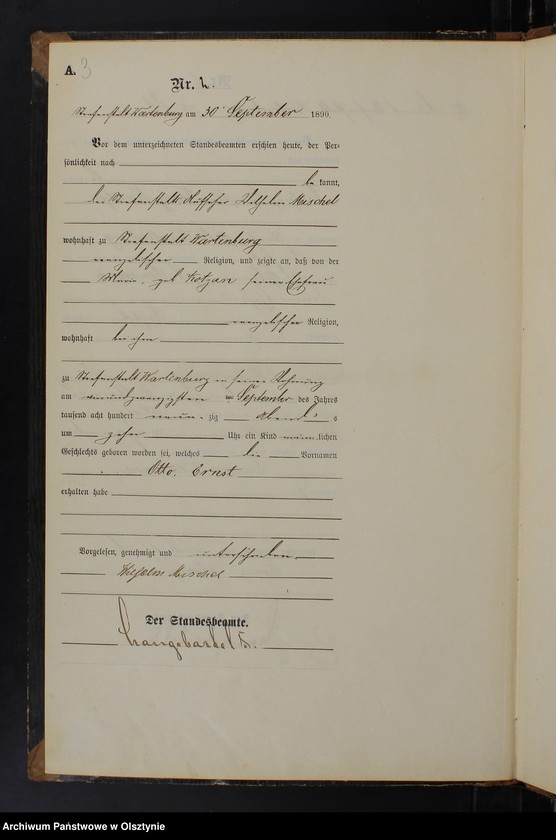 A. 3
Nr. 2.
Strafanstalt Wartenburg am 30 September 1890.
Vor dem unterzeichneten Standesbeamten erschien heute, der Per-
sönlichkeit nach
be kannt,
der Strafanstalts Aufseher Wilhelm Mischel
wohnhaft zu Strafanstalt Wartenburg
evangelischer Religion, und zeigte an, daß von der
Marie, geb Kotzan seiner Ehefrau
evangelischer Religion,
wohnhaft bei ihm
zu Strafanstalt Wartenburg in seiner Wohnung
am neunundzwanzigsten ten September des Jahres
tausend acht hundert neun zig Abends
um zehn Uhr ein Kind männlichen
Geschlechts geboren worden sei, welches die Vornamen
Otto Ernst
erhalten habe
Vorgelesen, genehmigt und unterschrieben
Wilhelm Mischel
Der Standesbeamte.
Archiwum Państwowe w Olsztynie